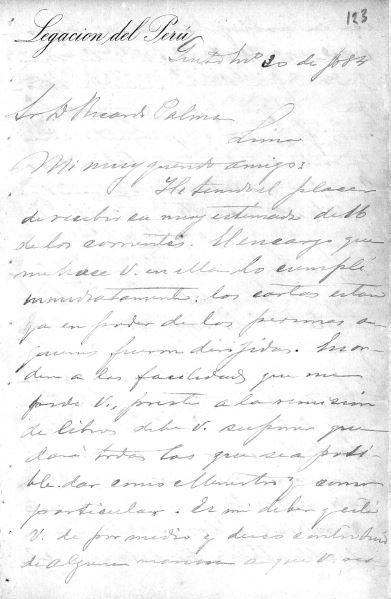 123
Legacion del Perú
de 1884
Sr D Ricardo Palma
Lima
Mi muy querido amigo:
He tenido el placer
de recibir su muy estimada de 16
de los corrientes. El encargo que
me hace V. en ella lo cumplí
inmediatamente: las cartas estan
ya en poder de las personas a
quienes fueron dirijidas. En or-
den a las facilidades que me
pide V., para la remision
de libros debe V. suponer que
daré todas las que sea posi-
ble dar como Ministro y como
particular. Es mi deber y está
V. de por medio y deseo contribuir
de alguna manera a que V.